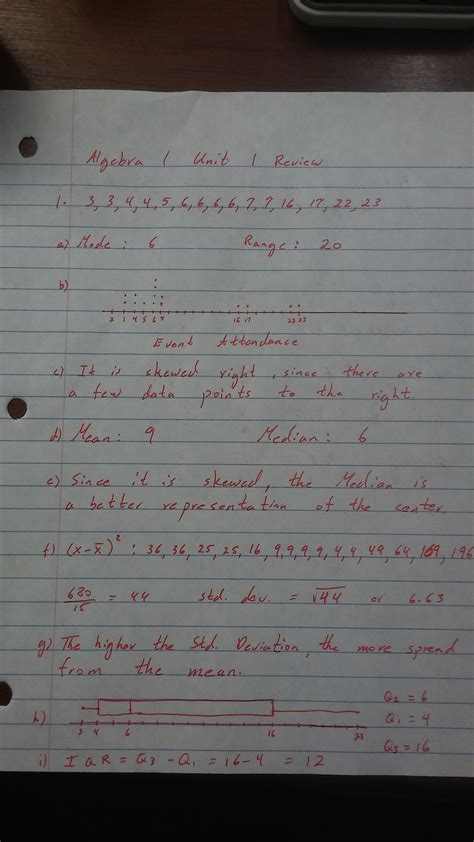 Algebra 1 Unit 1 Review
1. 3, 3, 4, 4, 5, 6, 6, 6, 6, 7, 7, 16, 17, 22, 23
a) Mode: 6 Range: 20
b)
2 3 4 5 6 7 16 17 22 23
Event Attendance
c) It is skewed right, since there are
a few data points to the right
d) Mean: 9 Median: 6
e) Since it is skewed, the Median is
a better representation of the center.
f) (x-x̄)²: 36, 36, 25, 25, 16, 9, 9, 9, 9, 4, 4, 49, 64, 169, 196
680/15 = 44 std. dev. = √44 or 6.63
g) The higher the Std. Deviation, the more spread
from the mean.
h)
3 4 6 16 23
Q2 = 6
Q1 = 4
Q3 = 16
i) IQR = Q3 - Q1 = 16-4 = 12